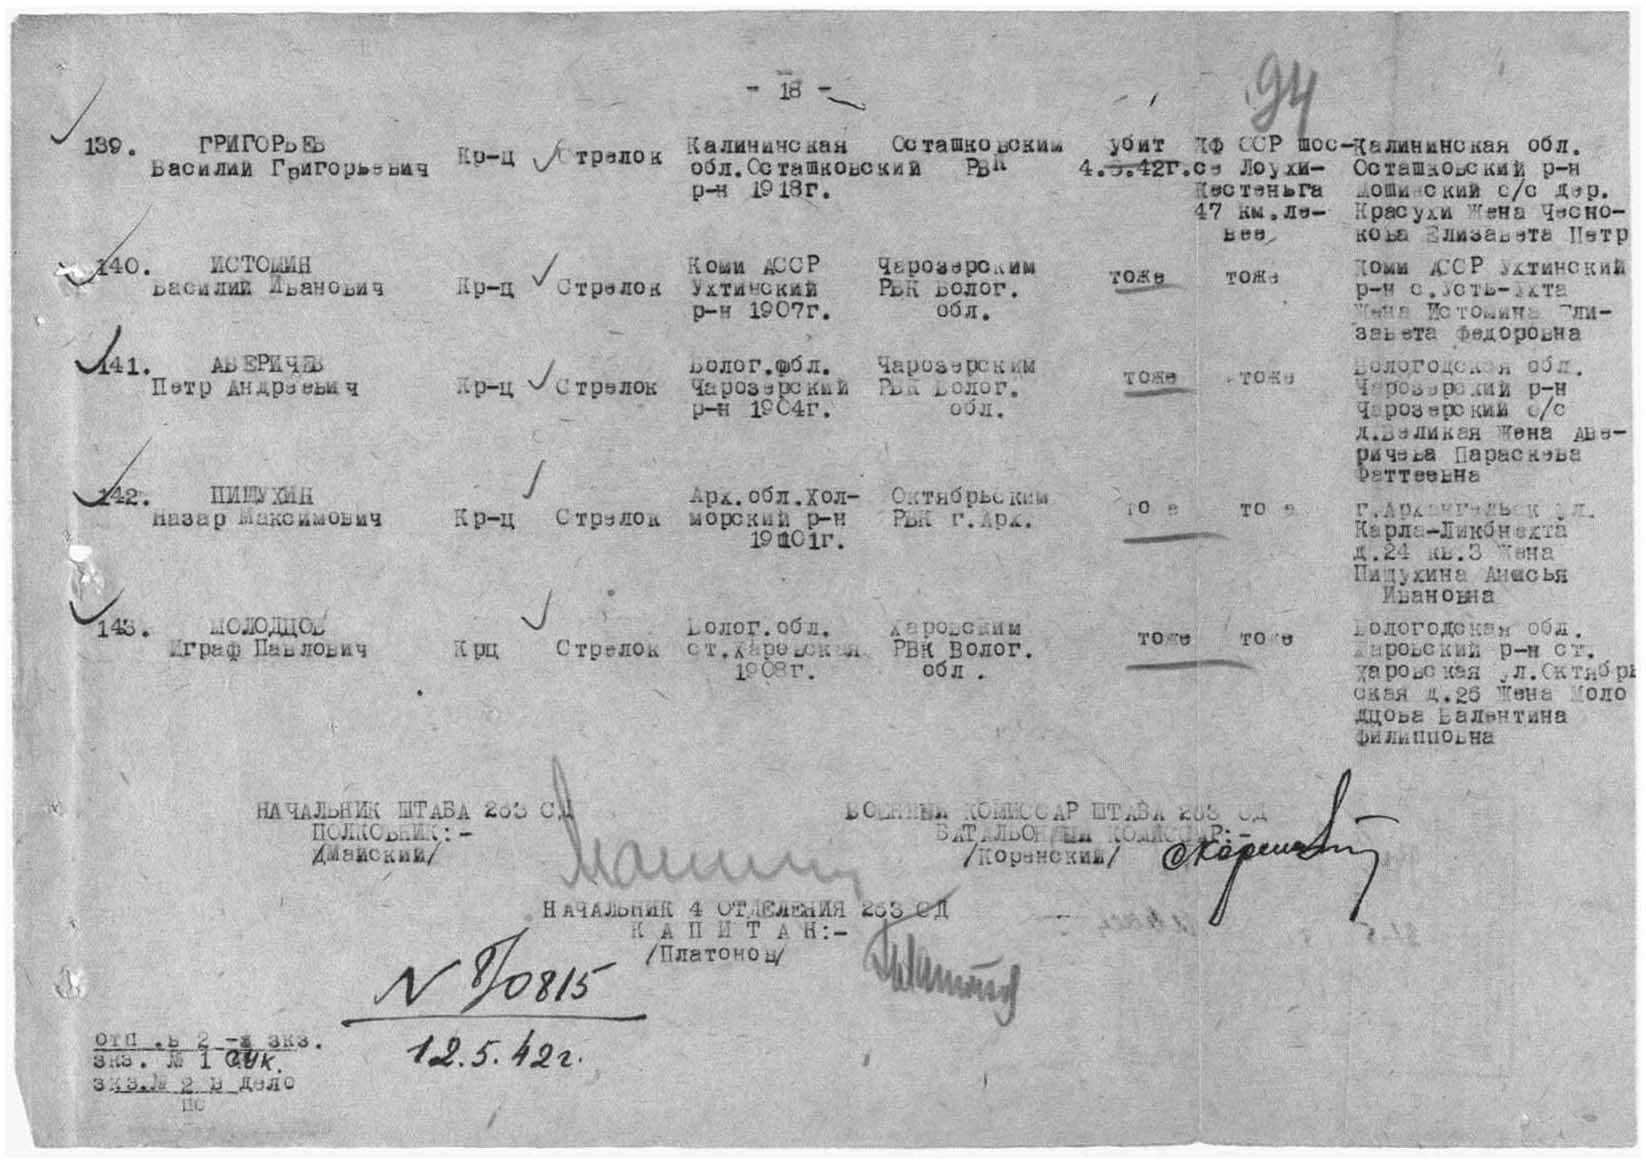 - 18 -
94
139. ГРИГОРЬЕВ Калининская Осташковским убит КФ ССР шос- Калининская обл.
Василий Григорьевич Кр-ц Стрелок обл.Осташковский РВК 4.5.42г. се Лоухи- Осташковский р-н
р-н 1918г. Кестеньга Мошинский с/с дер.
47 км.ле- Красухи Жена Чесно-
вее, кова Елизавета Петр
140. ИСТОМИН Коми АССР Чарозерским тоже тоже Коми АССР Ухтинский
Василий Иванович Кр-ц Стрелок Ухтинский РВК Волог. р-н с.Усть-Ухта
р-н 1907г. обл. Жена Истомина Ели-
завета Федоровна
141. АВЕРИЧЕВ Волог.обл. Чарозерским тоже тоже Вологодская обл.
Петр Андреевич Кр-ц Стрелок Чарозерский РВК Волог. Чарозерский р-н
р-н 1904г. обл. Чарозерский с/с
д.Великая Жена Аве-
ричева Параскева
Фаттеевна
142. ПИЩУХИН Арх.обл.Хол- Октябрьским то е то е г.Архангельск ул.
Назар Максимович Кр-ц Стрелок морский р-н РВК г.Арх. Карла-Либкнехта
1901г. д.24 кв.3 Жена
Пищухина Анисья
Ивановна
143. МОЛОДЦОВ Волог.обл. Харовским тоже тоже Вологодская обл.
Играф Павлович Крц Стрелок ст.Харовская РВК Волог. Харовский р-н ст.
1908г. обл. Харовская ул.Октябрь
ская д.26 Жена Моло
дцова Валентина
Филипповна
НАЧАЛЬНИК ШТАБА 263 СД ВОЕННЫЙ КОМИССАР ШТАБА 263 СД
ПОЛКОВНИК:- БАТАЛЬОННЫЙ КОМИССАР:-
/Майский/ /Коренский/
НАЧАЛЬНИК 4 ОТДЕЛЕНИЯ 263 СД
КАПИТАН:-
/Платонов/
N 8/0815
12.5.42г.
отп.в 2-х экз.
экз. № 1 ГУК.
экз.№ 2 в дело
пс